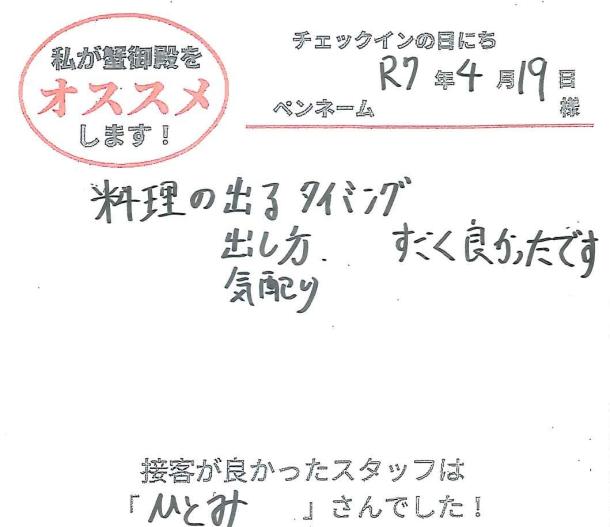 私が蟹御殿を
オススメ
します！
チェックインの日にち
R7 年 4 月 19 日
ペンネーム 様
料理の出るタイミング
出し方 すごく良かったです
気配り
接客が良かったスタッフは
「ひとみ」さんでした！